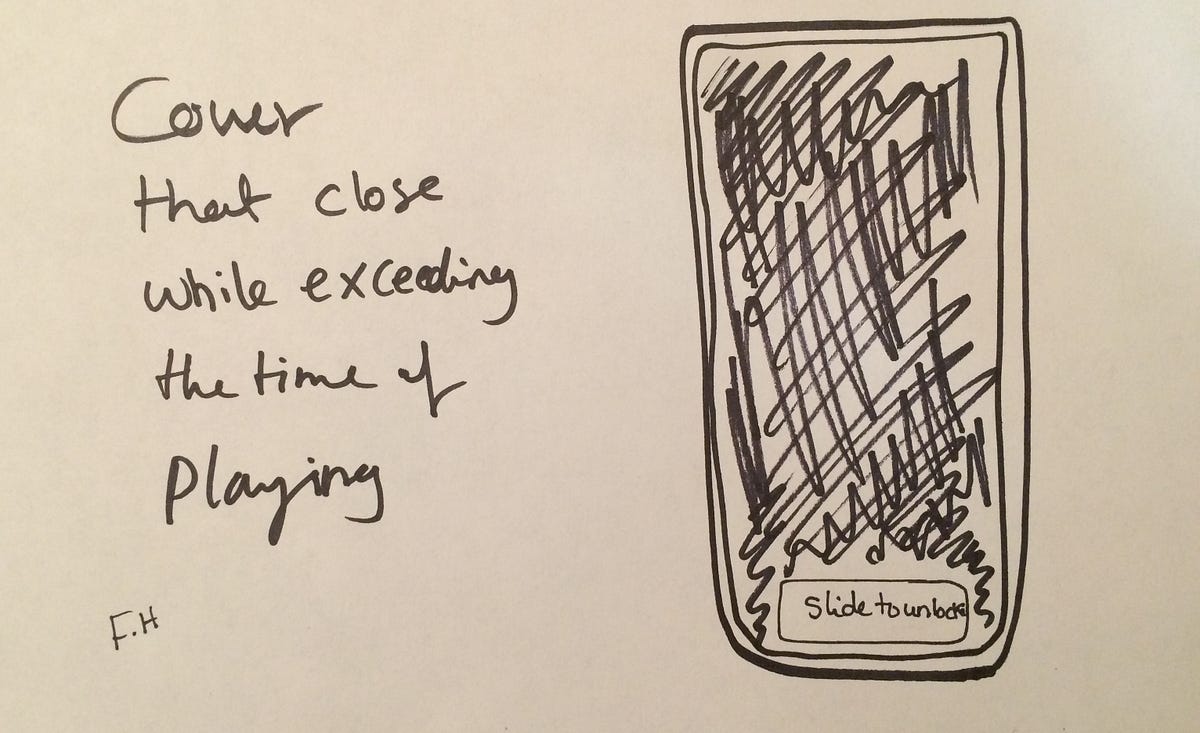 Cover
that close
while exceeding
the time of
playing
F.H
Slide to unlock